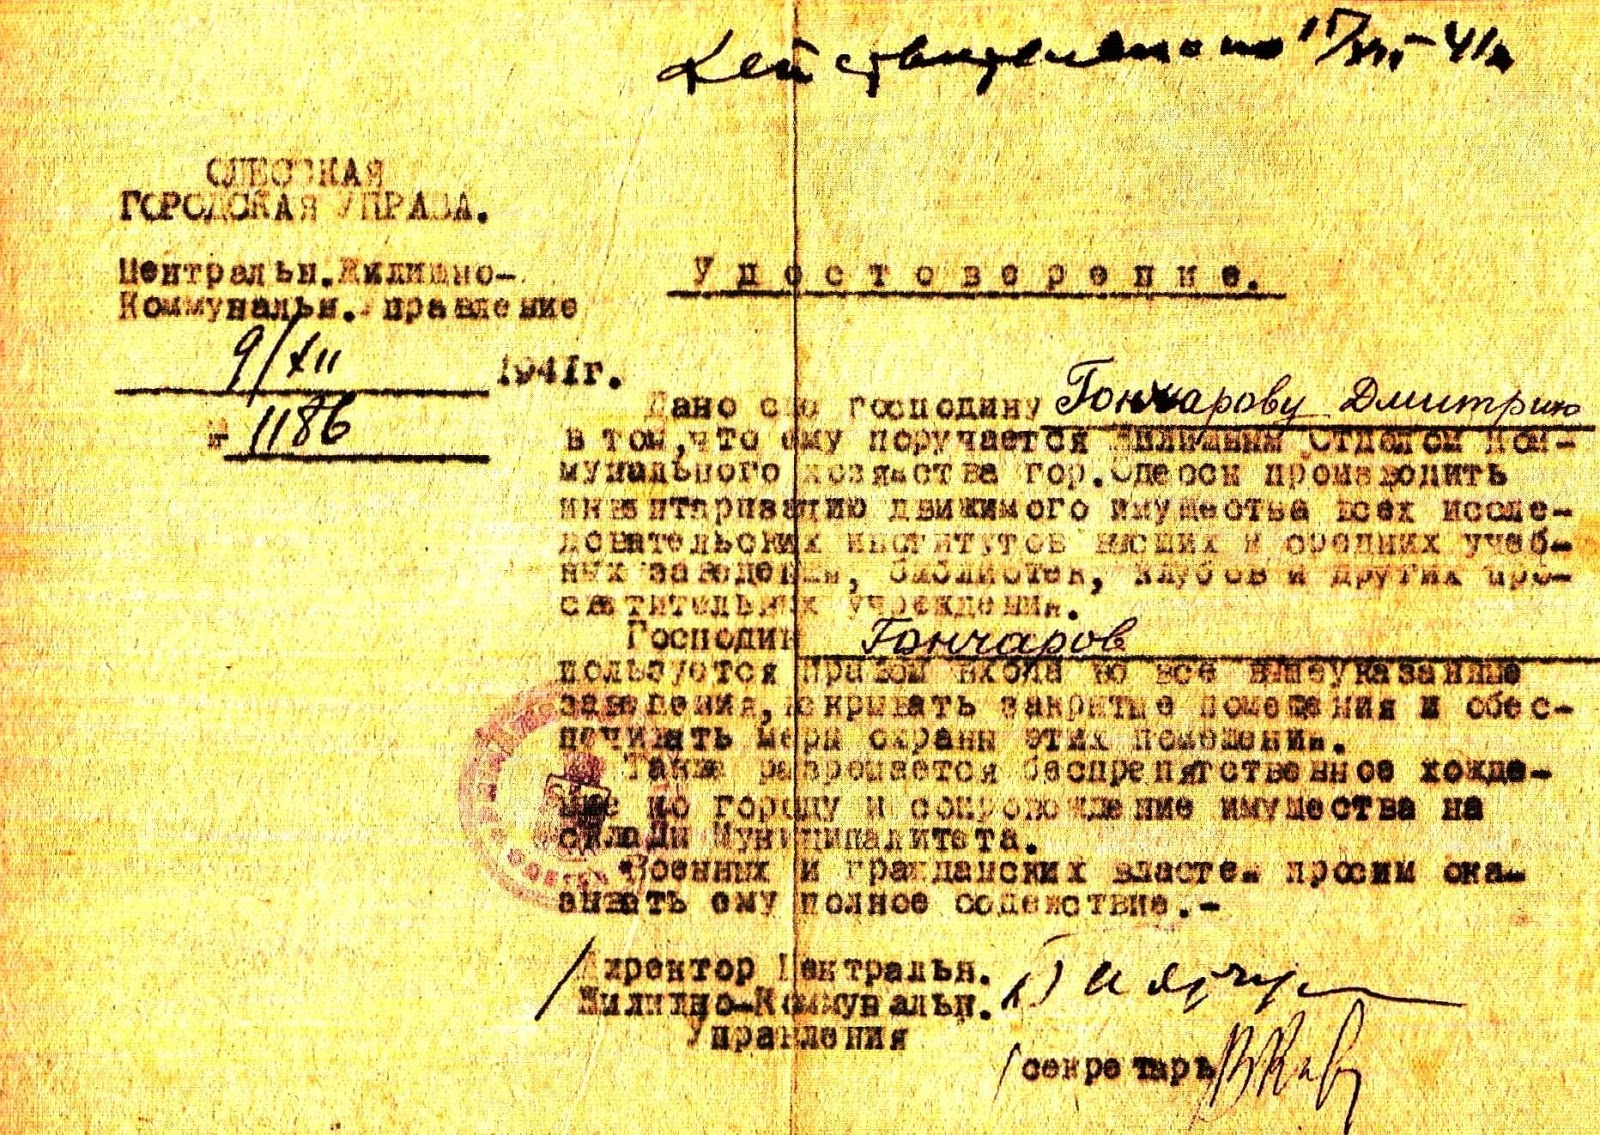 Действительно 17/XII-41г.
ОДЕССКАЯ
ГОРОДСКАЯ УПРАВА.
Центральн.Жилищно-
Коммунальн.Управление
9/XII 1941г.
№ 1186
Удостоверение.
Дано сие господину Гончарову Дмитрию
в том,что ему поручается Жилищным Отделом Ком-
мунального хозяйства гор.Одессы производить
инвентаризацию движимого имущества всех иссле-
довательских институтов высших и средних учеб-
ных заведений, библиотек, клубов и других про-
светительных учреждений.
Господин Гончаров
пользуется правом входа во все вышеуказанные
заведения, вскрывать закрытые помещения и обес-
печивать меры охраны этих помещений.
Также разрешается беспрепятственное хожде-
ние по городу и сопровождение имущества на
склады Муниципалитета.
Военных и гражданских властей просим ока-
зывать ему полное содействие.-
/Директор Центральн.
Жилищно-Коммунальн.
Управления
/секретарь